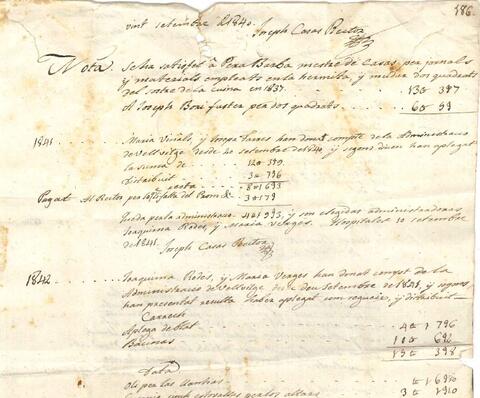 186.
vint setembre de 1840.
Joseph Casas Rector
Nota. Se ha satisfet à Pera Barba mestre de Casas, per jornals
y materials empleats en la hermita, y mudar dos quadrats
del sostre de la Cuina en 1837. 13
Al Joseph Bori fuster per dos quadrats. 6
1841. Maria Viñals, y Josepa Farres han donat compte de la Administracio
de Bellvitge desde 20 setembre del 1840, y segons diuen han aplegat
la suma de 12
Distribuit 3 796
resta 8 1693
Pagat Al Rector per la
3 179
Queda per la administracio 4 1593, y son elegidas administradoras
Joaquima Rodes, y Maria Verges. Hospitalet 10 setembre
de 1841. Joseph Casas Rector
1842 Joaquima Rodes, y Maria Verges han donat compt de la
Administracio de Bellvitge desde deu Setembre de 1841, y segons
han presentat resulta haber aplegat com segueix, y distribuit
Captech 4 1796
Aplega de blat 10 692
Bacinas
15 398
Data
Oli per las llantias 1690
los altars 3 1910